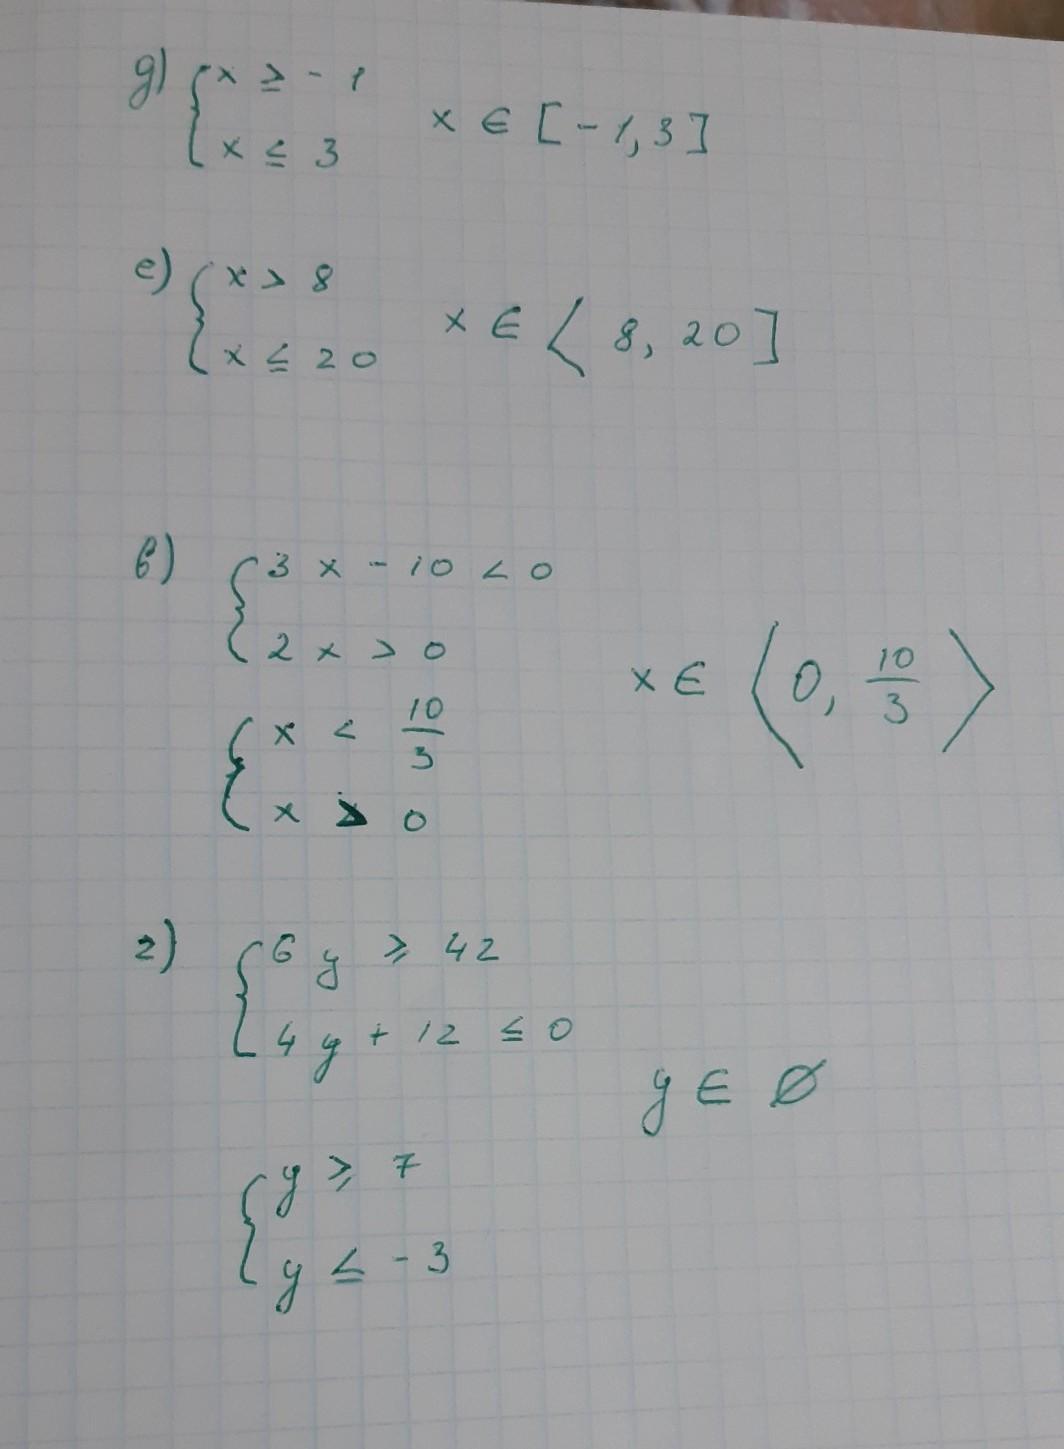 д) { x ≥ - 1
x ≤ 3
x ∈ [ - 1, 3 ]
е) { x > 8
x ≤ 20
x ∈ ⟨ 8, 20 ]
в) { 3 x - 10 < 0
2 x > 0
{ x < 10/3
x > 0
x ∈ ⟨ 0, 10/3 ⟩
г) { 6 y ⩾ 42
4 y + 12 ≤ 0
y ∈ ∅
{ y ⩾ 7
y ≤ - 3